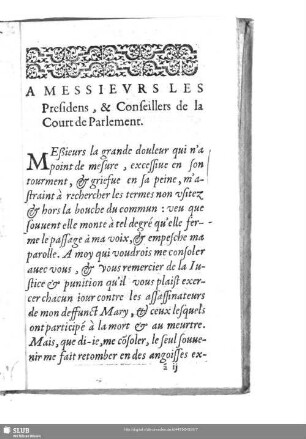 A MESSIEVRS LES
Presidens, & Conseillers de la
Court de Parlement.
MEssieurs la grande douleur qui n'a
point de mesure, excessiue en son
tourment, & griefue en sa peine, m'a-
straint à rechercher les termes non vsitez
& hors la bouche du commun : veu que
souuent elle monte à tel degré qu'elle fer-
me le passage à ma voix, & empesche ma
parolle. A moy qui voudrois me consoler
auec vous, & vous remercier de la Iu-
stice & punition qu'il vous plaist exer-
cer chacun iour contre les assassinateurs
de mon deffunct Mary, & ceux lesquels
ont participé à la mort & au meurtre.
Mais, que di-ie, me cõsoler, le seul souue-
nir me fait retomber en des angoisses ex-
2 ij
SLUB